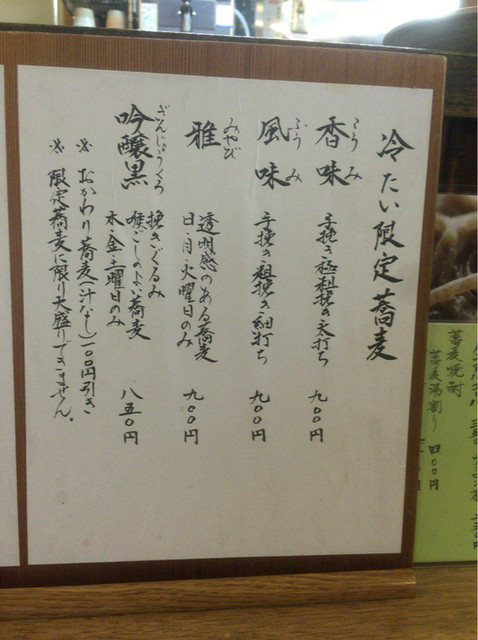 冷たい限定蕎麦
香味 こうみ 手挽き極粗挽き太打ち 九〇〇円
風味 ふうみ 手挽き粗挽き細打ち 九〇〇円
雅 みやび 透明感のある蕎麦
日・月・火曜日のみ 九〇〇円
吟醸黒 ぎんじょうくろ 挽きぐるみ
喉ごしのよい蕎麦
木・金・土曜日のみ 八五〇円
※ おかわり蕎麦(汁なし)一〇〇円引き
※ 限定蕎麦に限り大盛りできません。
蕎麦焼酎
蕎麦湯割り 四〇〇円